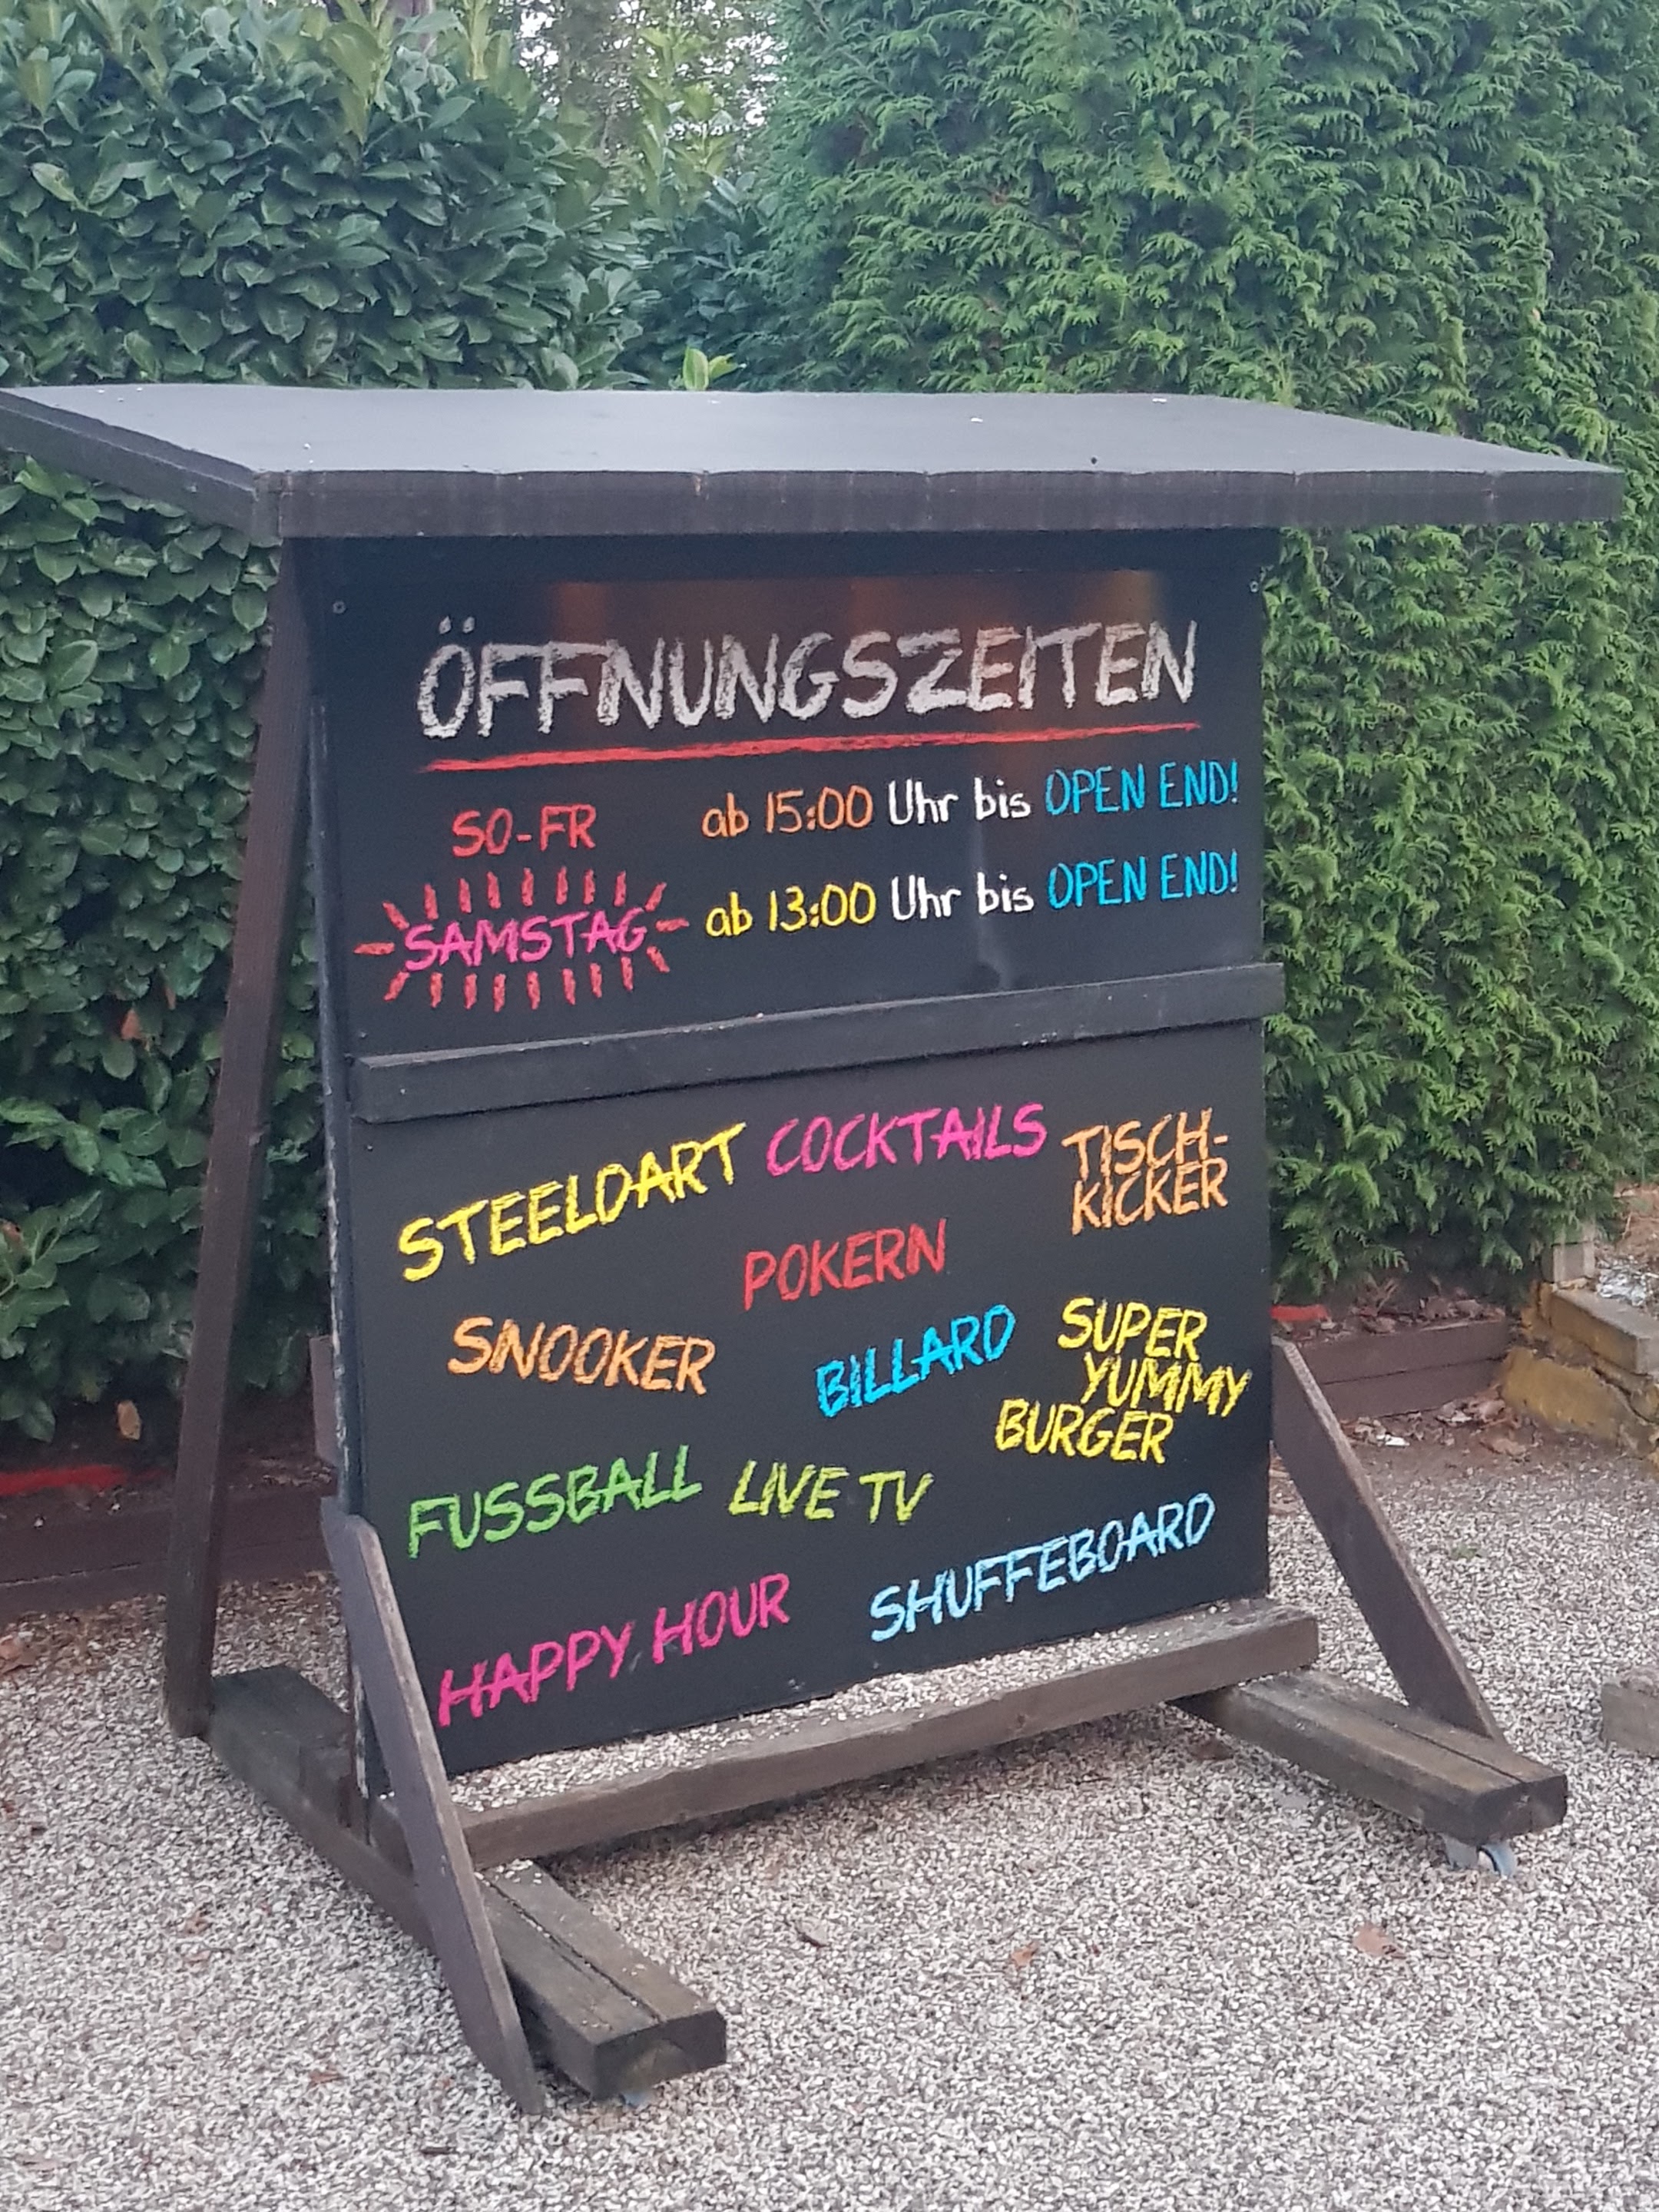 ÖFFNUNGSZEITEN
SO-FR ab 15:00 Uhr bis OPEN END!
SAMSTAG ab 13:00 Uhr bis OPEN END!
STEELDART COCKTAILS TISCH-
KICKER
POKERN
SNOOKER BILLARD SUPER
YUMMY
BURGER
FUSSBALL LIVE TV
HAPPY HOUR SHUFFEBOARD